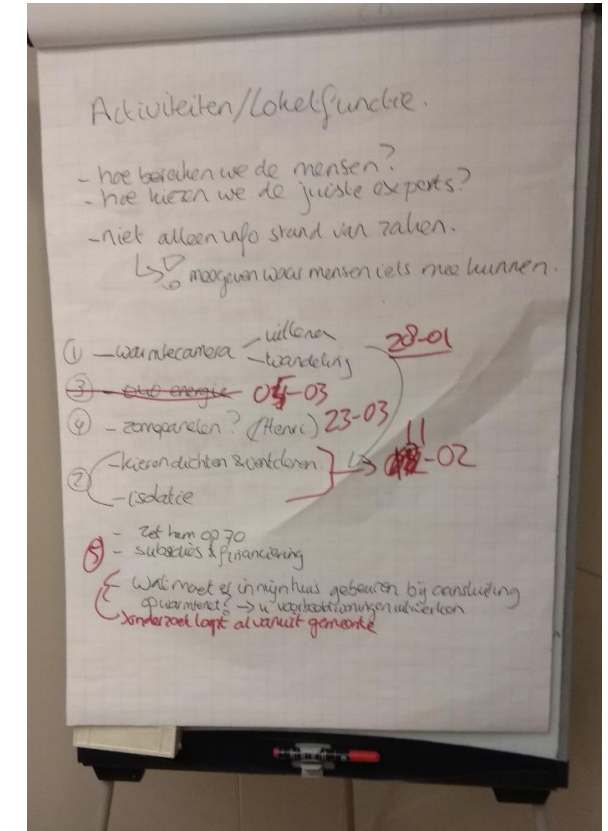 Activiteiten/Loketfunctie.
- hoe bereiken we de mensen?
- hoe kiezen we de juiste experts?
- niet alleen info stand van zaken.
meegeven waar mensen iets mee kunnen.
① - warmtecamera - uitlenen
- wandeling
28-01
③ - energie 04-03
④ - zonnepanelen? (Henri) 23-03
② - kieren dichten & ventileren
11-02
- isolatie
- Zet hem op 70
⑤ - subsidies & financiering
- Wat moet er in mijn huis gebeuren bij aansluiting
op warmtenet? → voorbeeldwoningen uitwerken
onderzoek loopt al vanuit gemeente